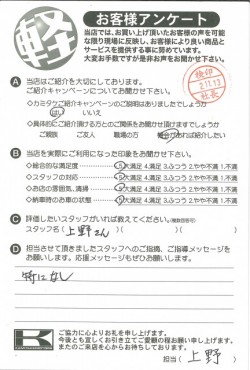 軽
お客様アンケート
当店では、お買い上げ頂いたお客様の声を可能
な限り現場に反映し、お客様により良い商品と
サービスを提供する事に努めています。
大変お手数ですが是非お声をお聞かせ下さい。
検印
2.11.13
社長
A 当店はご紹介を大切にしております。
ご紹介キャンペーンについてお聞かせ下さい。
ご紹介キャンペーンの説明はありましたでしょうか
はい いいえ
◇具体的にご紹介頂ける方とのご関係をお聞かせ頂けますでしょうか
ご親族 ご友人 職場の方 機会があれば紹介したい
B 当店を実際にご利用になった印象をお聞かせ下さい。
◇総合的な満足度 5大満足 4.満足 3.ふつう 2.やや不満 1.不満
◇スタッフの対応 5大満足 4.満足 3.ふつう 2.やや不満 1.不満
◇お店の雰囲気、清掃 5大満足 4.満足 3.ふつう 2.やや不満 1.不満
◇納車時のお車の状態 5大満足 4.満足 3.ふつう 2.やや不満 1.不満
C 評価したいスタッフがいれば教えてください。(複数回答可)
スタッフ名( 上野さん )( )( )
D 担当させて頂きましたスタッフへのご指摘、ご指導メッセージを
お願いします。応援メッセージもぜひお願いします。
特になし
K
ご協力に心よりお礼を申し上げます。
今後とも宜しくお引き立てご愛顧の程お願い申し上げます。
またのご来店を心からお待ちしております。
担当( 上野 )